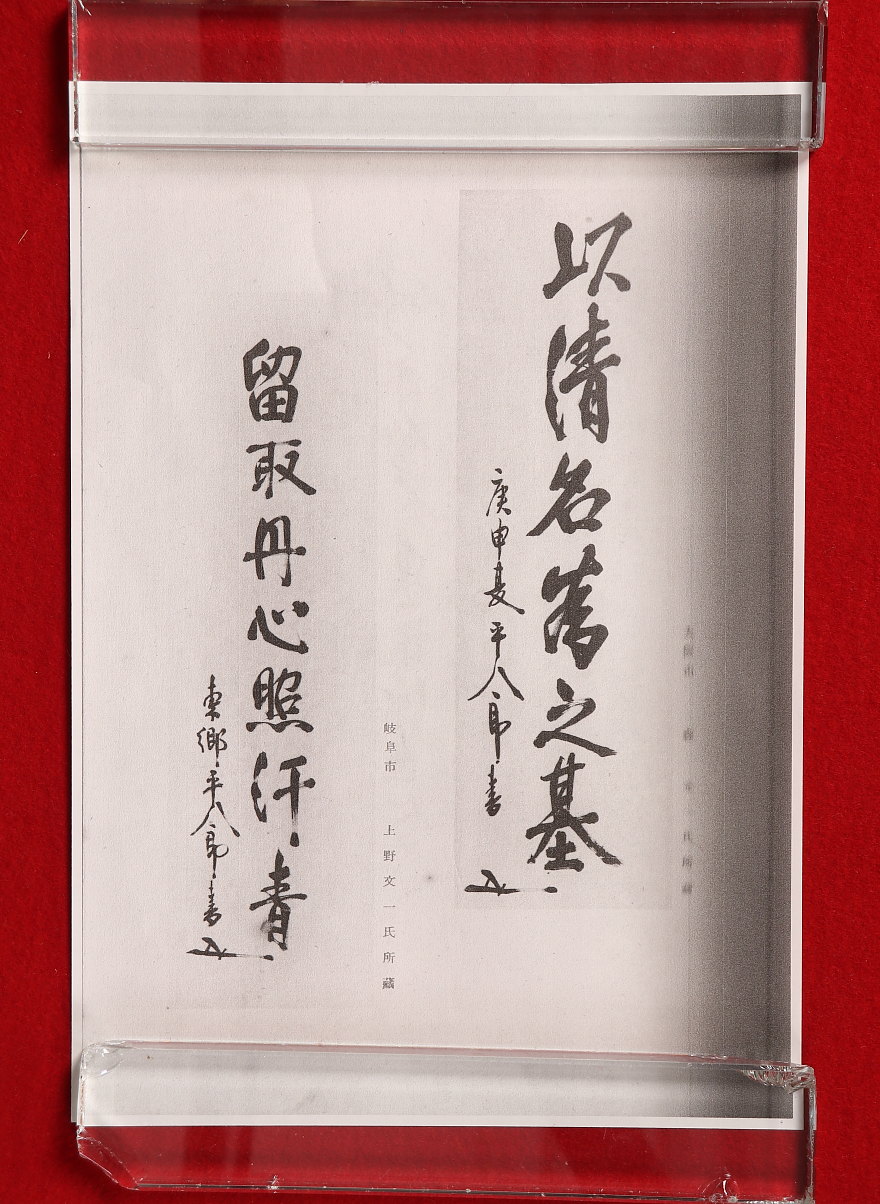 大阪市 氏所藏
以清名之基
庚申夏平八郎書
岐阜市 上野文一氏所藏
留取丹心照汗青
東郷平八郎書